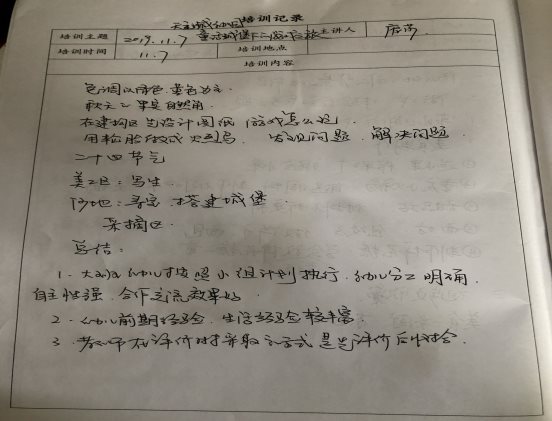 培训记录
培训主题 2019.11.7 主讲人
培训时间 11.7 培训地点
培训内容
色调以绿色、黄色为主.
秋天 果实 自然角
在建构区 设计图纸 游戏怎么玩
用轮胎做成火烈鸟. 发现问题. 解决问题
二十四节气
美工区：写生
沙地：寻宝. 搭建城堡
采摘区.
总结：
1. 大班幼儿按照小组计划执行. 幼儿分工明确,
自主性强. 合作交流效果好
2. 幼儿前期经验. 生活经验较丰富.
3. 教师在评价时采取方式是与评价后小结合.